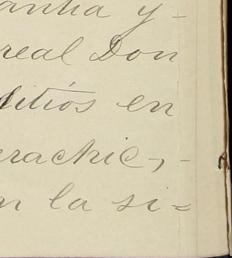 anha y-
real Don
litiós en
rachic,-
n la si=